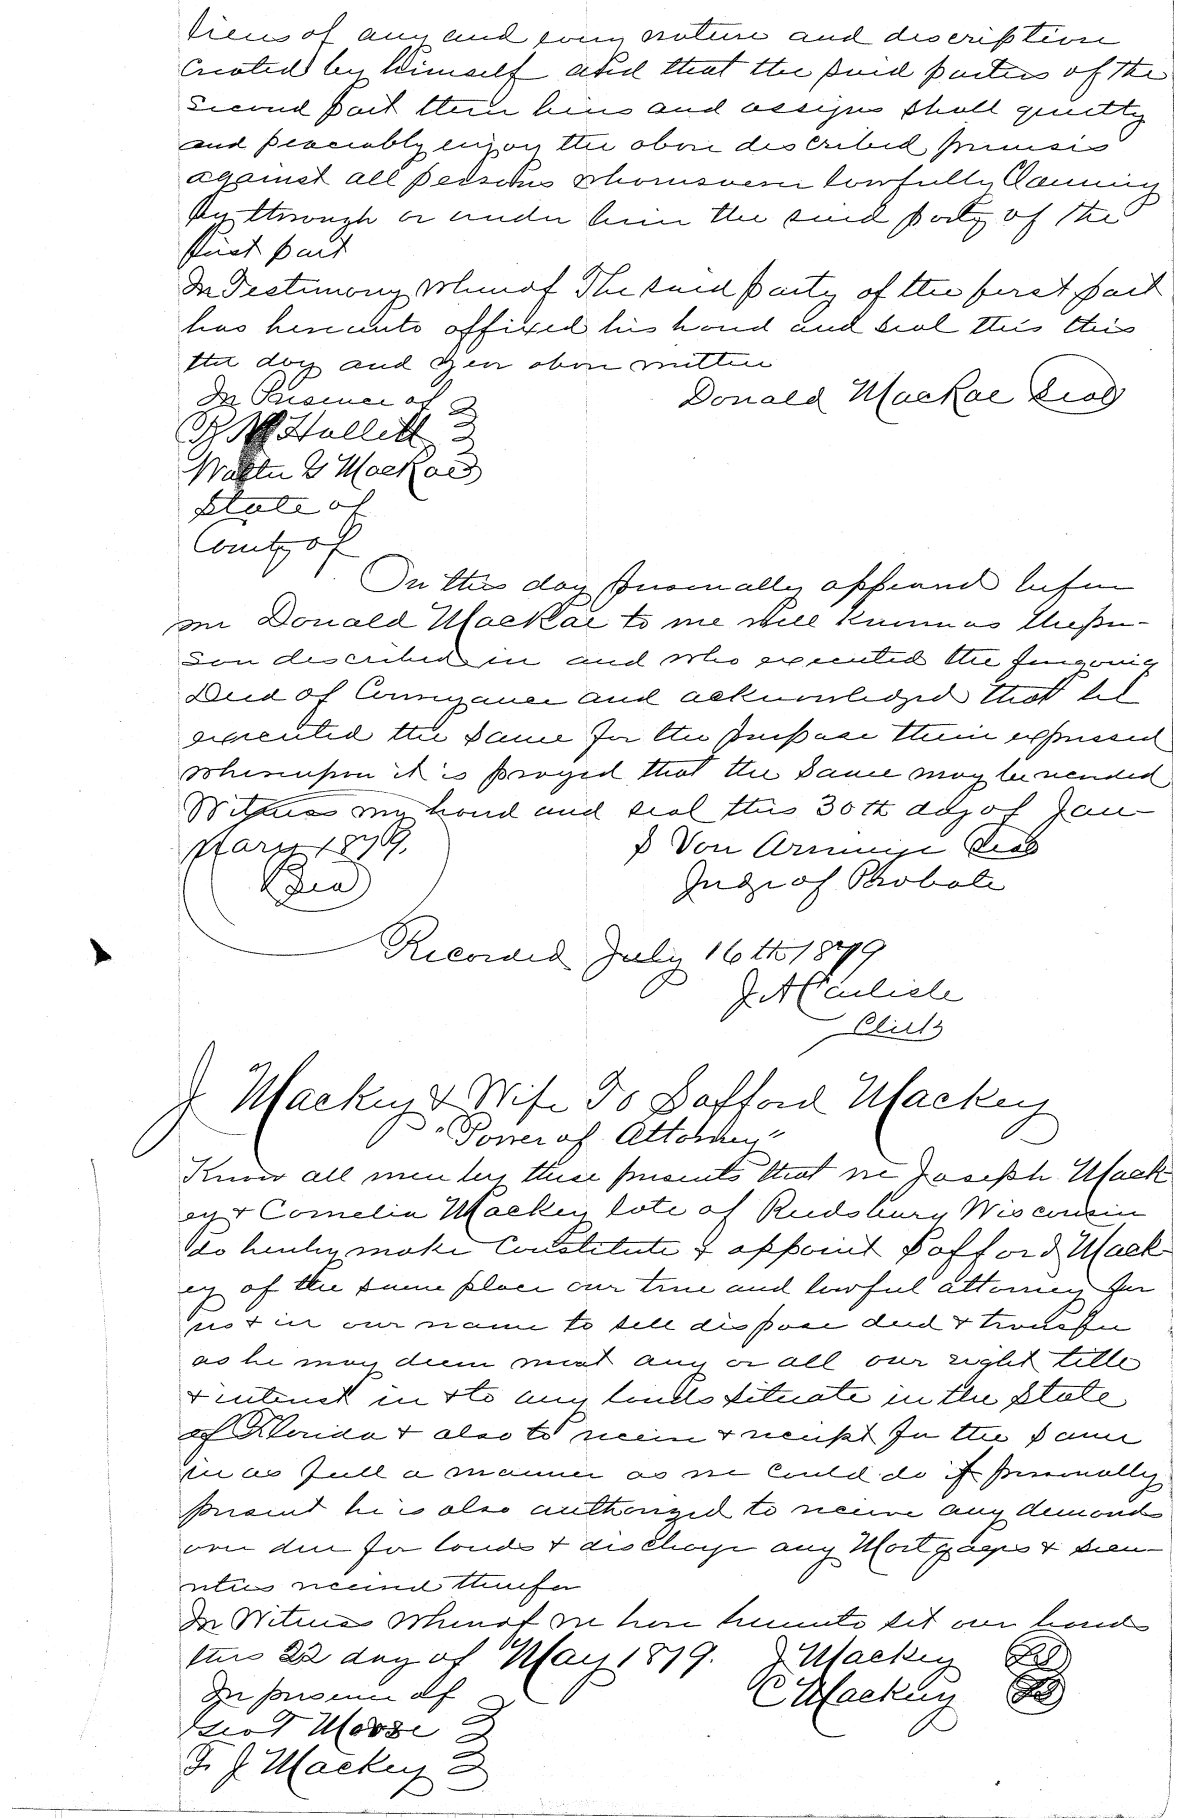 liens of any and every nature and description
created by himself and that the said parties of the
second part their heirs and assigns shall quietly
and peaceably enjoy the above described premises
against all persons whomsoever lawfully claiming
by through or under him the said party of the
first part
In Testimony Whereof The said party of the first part
has hereunto affixed his hand and seal this this
the day and year above written
In Presence of
Donald MacRae Seal
Hallett
Walter G MacRae
State of
County of
On this day personally appeared before
me Donald MacRae to me well known as the per-
son described in and who executed the foregoing
Deed of Conveyance and acknowledged that he
executed the same for the purpose therein expressed
whereupon it is prayed that the same may be recorded
Witness my hand and seal this 30th day of Jan-
uary 1879.
Von Arminge Seal
Seal
Judge of Probate
Recorded July 16th 1879
J A Carlisle
Clerk
J Mackey & Wife To Safford Mackey
"Power of Attorney"
Know all men by these presents that we Joseph Mack
ey & Cornelia Mackey late of Reedsbury Wisconsin
do hereby make Constitute & appoint Safford Mack
ey of the same place our true and lawful attorney for
us & in our name to sell dispose deed & transfer
as he may deem meet any or all our right title
& interest in & to any lands situate in the State
of Florida & also to receive & receipt for the same
in as full a manner as we could do if personally
present he is also authorized to receive any demands
over due for lands & discharge any Mortgages & secu-
rities received therefor
In Witness Whereof we have hereunto set our hands
this 22 day of May 1879. J Mackey
In presence of C Mackey
Geo T Morse
F. J Mackey